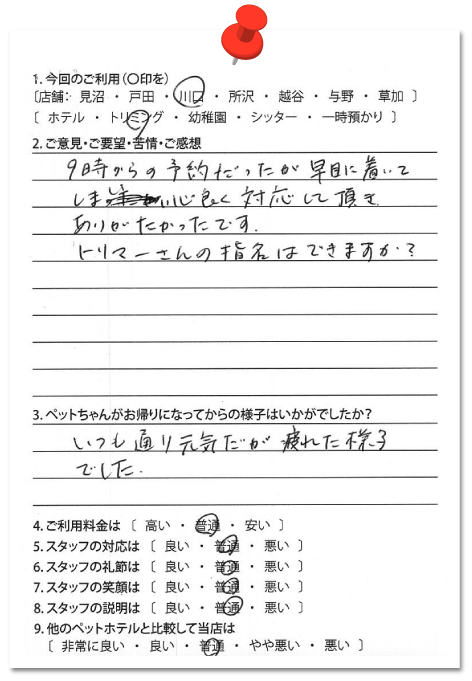 1. 今回のご利用(〇印を)
〔店舗: 見沼 ・ 戸田 ・ 川口 ・ 所沢 ・ 越谷 ・ 与野 ・ 草加 〕
〔 ホテル ・ トリミング ・ 幼稚園 ・ シッター ・ 一時預かり 〕
2. ご意見・ご要望・苦情・ご感想
9時からの予約だったが早目に着いて
しま 心良く対応して頂き
ありがたかったです.
トリマーさんの指名はできますか?
3. ペットちゃんがお帰りになってからの様子はいかがでしたか?
いつも通り元気だが疲れた様子
でした.
4. ご利用料金は 〔 高い ・ 普通 ・ 安い 〕
5. スタッフの対応は 〔 良い ・ 普通 ・ 悪い 〕
6. スタッフの礼節は 〔 良い ・ 普通 ・ 悪い 〕
7. スタッフの笑顔は 〔 良い ・ 普通 ・ 悪い 〕
8. スタッフの説明は 〔 良い ・ 普通 ・ 悪い 〕
9. 他のペットホテルと比較して当店は
〔 非常に良い ・ 良い ・ 普通 ・ やや悪い ・ 悪い 〕